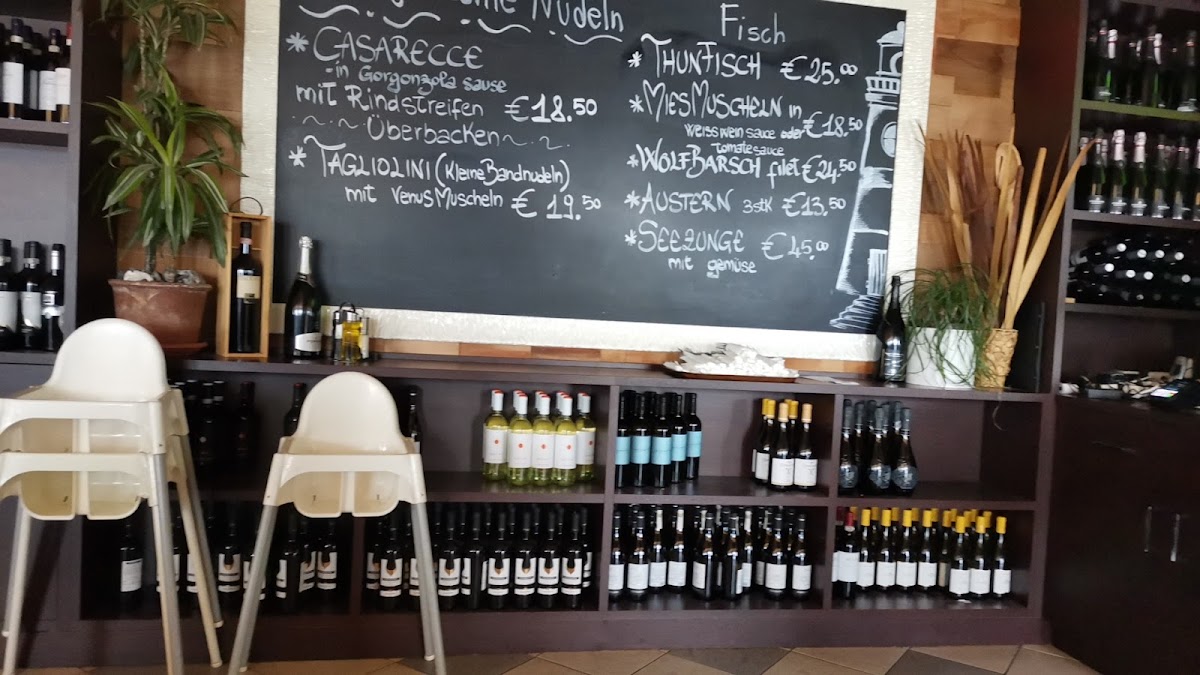 Nudeln
* CASARECCE
in Gorgonzola sause
mit Rindstreifen €18.50
~.~.Überbacken~.~.
* TAGLIOLINI (kleine Bandnudeln)
mit Venus Muscheln € 19.50
Fisch
* THUNFISCH €25.00
* MIESMUSCHELN in €18.50
Weisswein sauce oder
Tomatesauce
* WOLFBARSCH filet €24.50
* AUSTERN 3stk €13.50
* SEEZUNGE €45.00
mit gemüse